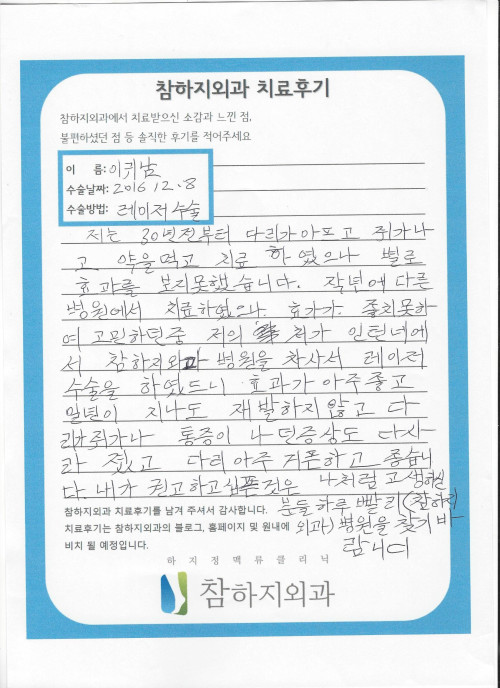 참하지외과 치료후기
참하지외과에서 치료받으신 소감과 느낀 점,
불편하셨던 점 등 솔직한 후기를 적어주세요
이 름: 이귀남
수술날짜: 2016 12.8
수술방법: 레이저수술
저는 30년전부터 다리가아프고 쥐가나
고 약을먹고 치료 하였으나 별로
효과를 보지못했습니다. 작년에 다른
병원에서 치료하였으나. 효가가. 좋치못하
여 고민하던중 저의 처가 인턴네에
서 참하지외과 병원을 차사서 레이저
수술을 하였드니 효과가 아주좋고
일년이 지나도 재발하지 않고 다
리가쥐가나 통증이 나던증상도 다사
라 졌고 다리아주 거뜬하고 좋습니
다. 내가 권고하고십픈것은 나처럼 고생하실
분들 하루 빨리 (참하지
외과) 병원을 찾기 바
람니다
참하지외과 치료후기를 남겨 주셔서 감사합니다.
치료후기는 참하지외과의 블로그, 홈페이지 및 원내에
비치 될 예정입니다.
하지정맥류클리닉
참하지외과